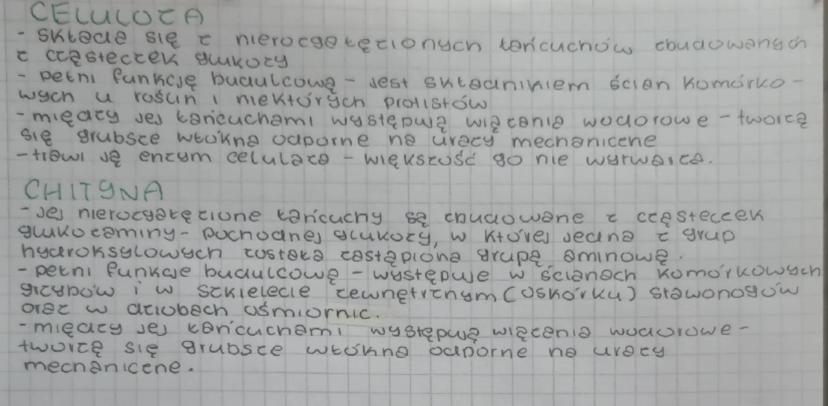 CELULOZA
- składa się z nierozgałęzionych łańcuchów zbudowanych
z cząsteczek glukozy
- pełni funkcję budulcową - jest składnikiem ścian komórko-
wych u roślin i niektórych protistów
- między jej łańcuchami występują wiązania wodorowe - tworzą
się grubsze włókna odporne na urazy mechaniczne
- trawi ją enzym celulaza - większość go nie wytwarza.
CHITYNA
- Jej nierozgałęzione łańcuchy są zbudowane z cząsteczek
glukozaminy - pochodnej glukozy, w której jedna z grup
hydroksylowych została zastąpiona grupą aminową.
- pełni funkcję budulcową - występuje w ścianach komórkowych
grzybów i w szkielecie zewnętrznym (oskórku) stawonogów
oraz w dziobach ośmiornic.
- między jej łańcuchami występują wiązania wodorowe -
tworzą się grubsze włókna odporne na urazy
mechaniczne.